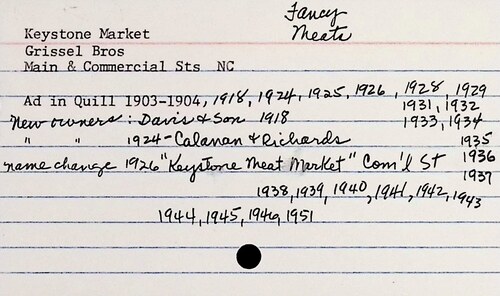 Fancy
Meats
Keystone Market
Grissel Bros
Main & Commercial Sts NC
Ad in Quill 1903-1904, 1918, 1924, 1925, 1926, 1928, 1929
1931, 1932
New owners: Davis & Son 1918 1933, 1934
" " 1924 - Calanan & Richards 1935
name change 1926 "Keystone Meat Market" Com'l St 1936
1937
1938, 1939, 1940, 1941, 1942, 1943
1944, 1945, 1949, 1951